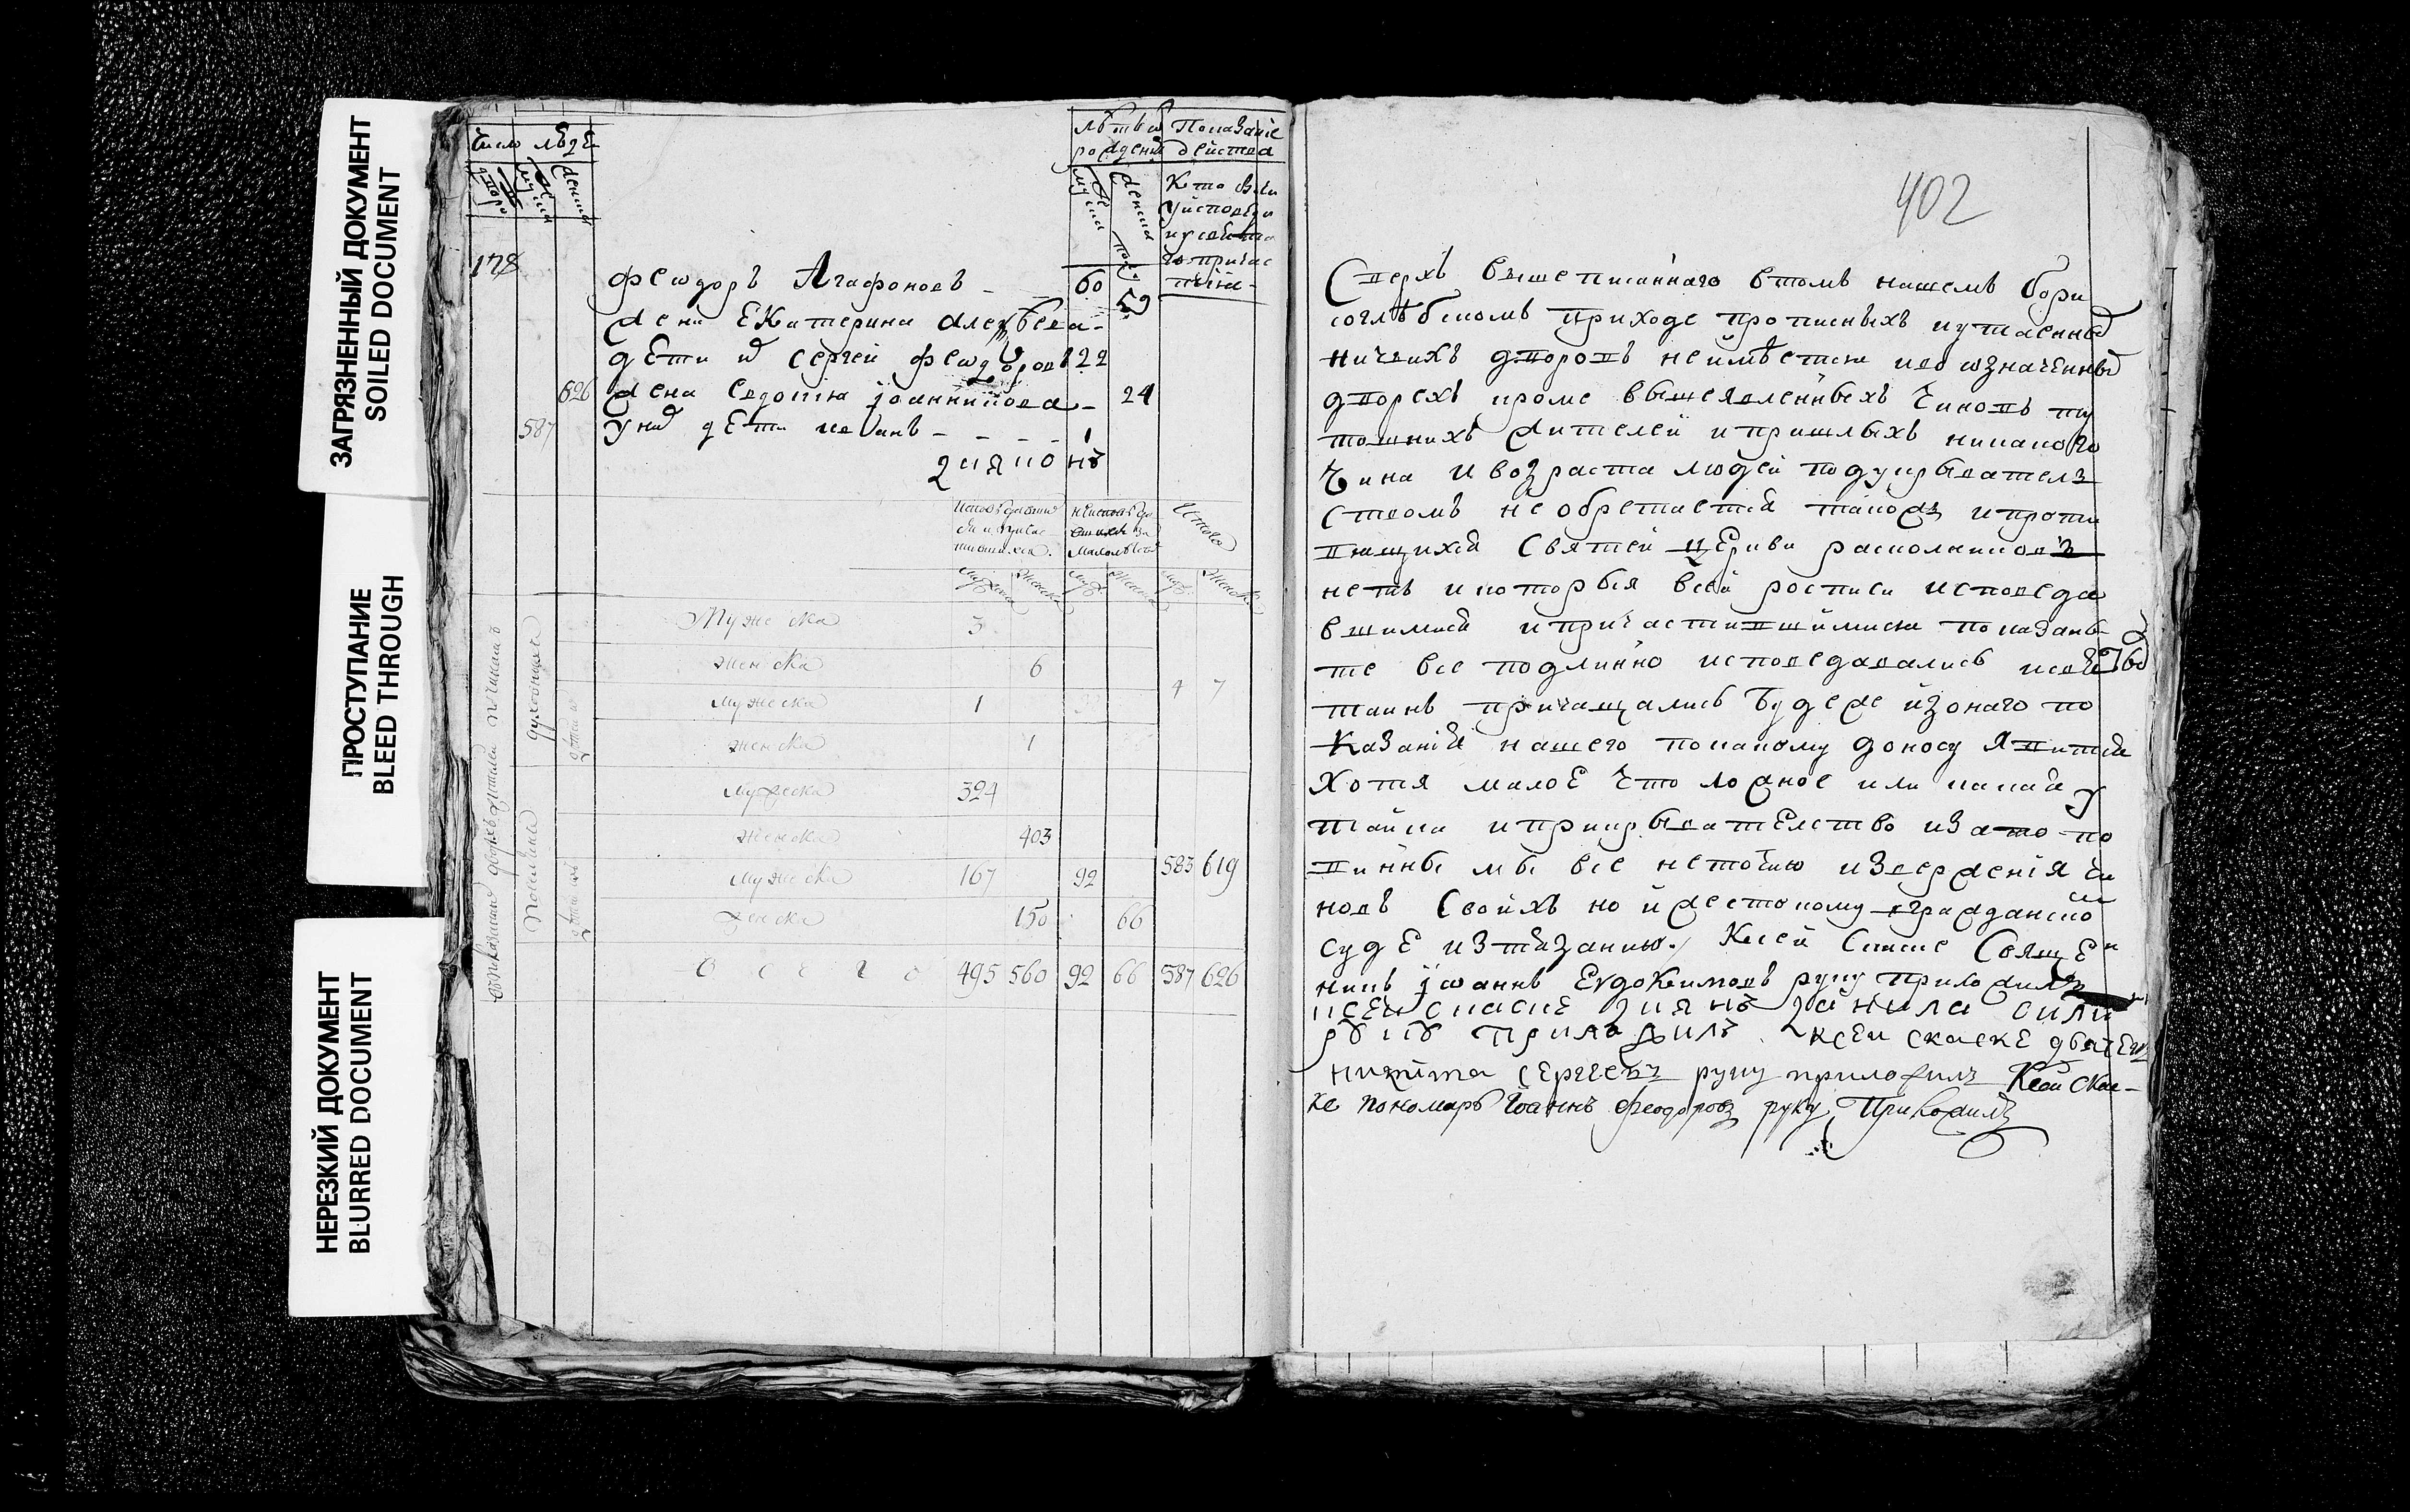 ЗАГРЯЗНЕННЫЙ ДОКУМЕНТ
SOILED DOCUMENT
ПРОСТУПАНИЕ
BLEED THROUGH
НЕРЕЗКИЙ ДОКУМЕНТ
BLURRED DOCUMENT
Число людѣ
лѣта ѿ Показаніе
рожденїѧ действа
178
феѡдоръ Агафоновъ - 60
жена Екатерина Алеѯѣева - 59
дети иⷯ сергей феѡдоровъ 22
626 жена Евдокїя їоанникїова - 24
587 у ниⷯ дѣти иванъ - - - - 1
дияконъ
Мужеска 3
женска 6
мужеска 1
4 7
женска 1
духовныя
мужеска 394
женска 403
583 619
мужеска 167 92
женска 150 66
всего 495 560 92 66 587 626
402
Сверхъ вышеписаннаго втомъ нашемъ бори
соглѣбскомъ приходе прописныхъ иутаеныⷯ
ничьихъ дворовъ неимѣется ивозначенныⷯ
дворехъ кроме вышеявленныхъ чиновъ ту
тошнихъ жителей ипришлыхъ никакого
чина ивозраста людей подукрыватель
ствомъ необретается такожъ ипроти
вящихся Святей церкви раскольниковъ
нетъ икоторыя всей росписи исповеда
вшимися ипричастившимися показаны
те все подлинно исповедавались исвѧтыⷯ
таинъ причащались Буде же изонаго по
казанїя нашего покакому доносу явится
хотя малое что ложное или какая у
тайка иприкрывателство иза то по
винны мы все неточию изверженїя чи
новъ Своихъ но ижестокому гражданско
суде истязанию. Ксей Скаске Свящеⁿ
никъ їоаннъ Евдокимовъ руку приложилъ
ксеи скаске диянъ данила
руку приложилъ ксеи скаске дьячекъ
никита сергеевъ руку приложилъ Ксей Скас-
ке пономарь Іоаннъ Феодоровъ руку Приложилъ